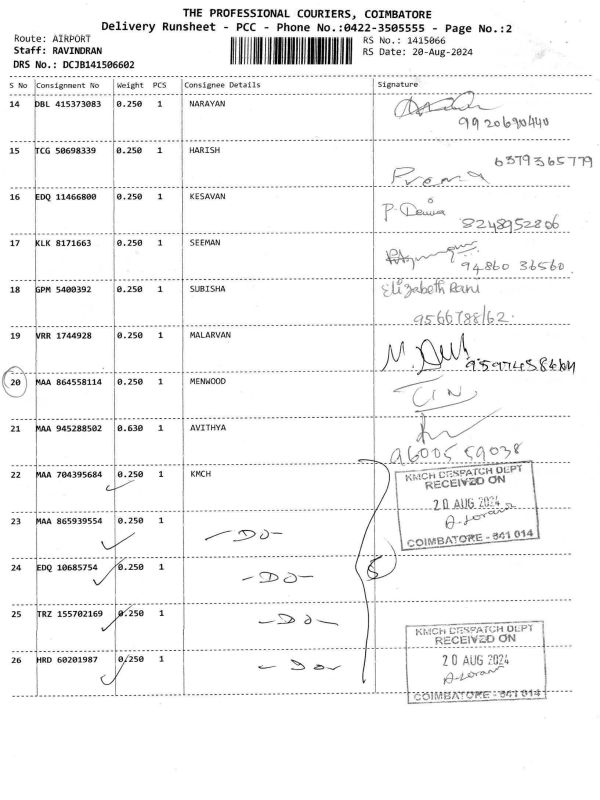 THE PROFESSIONAL COURIERS, COIMBATORE
Delivery Runsheet - PCC - Phone No.:0422-3505555 - Page No.:2
Route: AIRPORT
RS No.: 1415066
Staff: RAVINDRAN
RS Date: 20-Aug-2024
DRS No.: DCJB141506602
S No Consignment No Weight PCS Consignee Details Signature
14 DBL 415373083 0.250 1 NARAYAN
9920690440
15 TCG 50698339 0.250 1 HARISH
6379365779
Prema
16 EDQ 11466800 0.250 1 KESAVAN
P-Deniva
8248952806
17 KLK 8171663 0.250 1 SEEMAN
94860 36560
18 GPM 5400392 0.250 1 SUBISHA Elizabeth Rani
9566788162.
19 VRR 1744928 0.250 1 MALARVAN
20 MAA 864558114 0.250 1 MENWOOD
21 MAA 945288502 0.630 1 AVITHYA
9600559038
22 MAA 704395684 0.250 1 KMCH
KMCH DESPATCH DEPT
RECEIVED ON
20 AUG 2024
COIMBATORE - 641 014
23 MAA 865939554 0.250 1 -DO-
24 EDQ 10685754 0.250 1 -DO-
5
25 TRZ 155702169 0.250 1 -DO-
26 HRD 60201987 0.250 1 -DO-
KMCH DESPATCH DEPT
RECEIVED ON
20 AUG 2024
COIMBATORE - 641 014